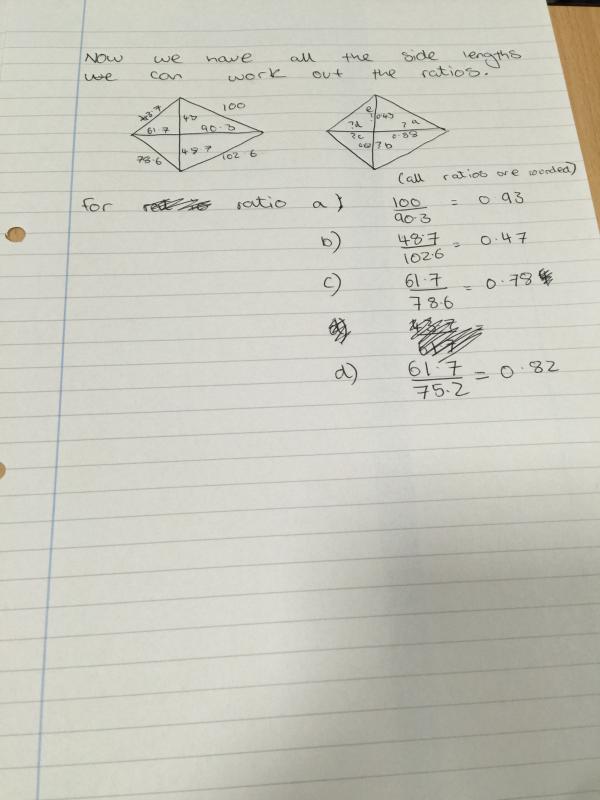 Now we have all the side lengths
we can work out the ratios.
100
43
61.7 90.3
78.6 48.7 102.6
e
0.43
?d ?a
?c 0.88
?b
(all ratios are rounded)
For ratio a) 100/90.3 = 0.93
b) 48.7/102.6 = 0.47
c) 61.7/78.6 = 0.78
d) 61.7/75.2 = 0.82